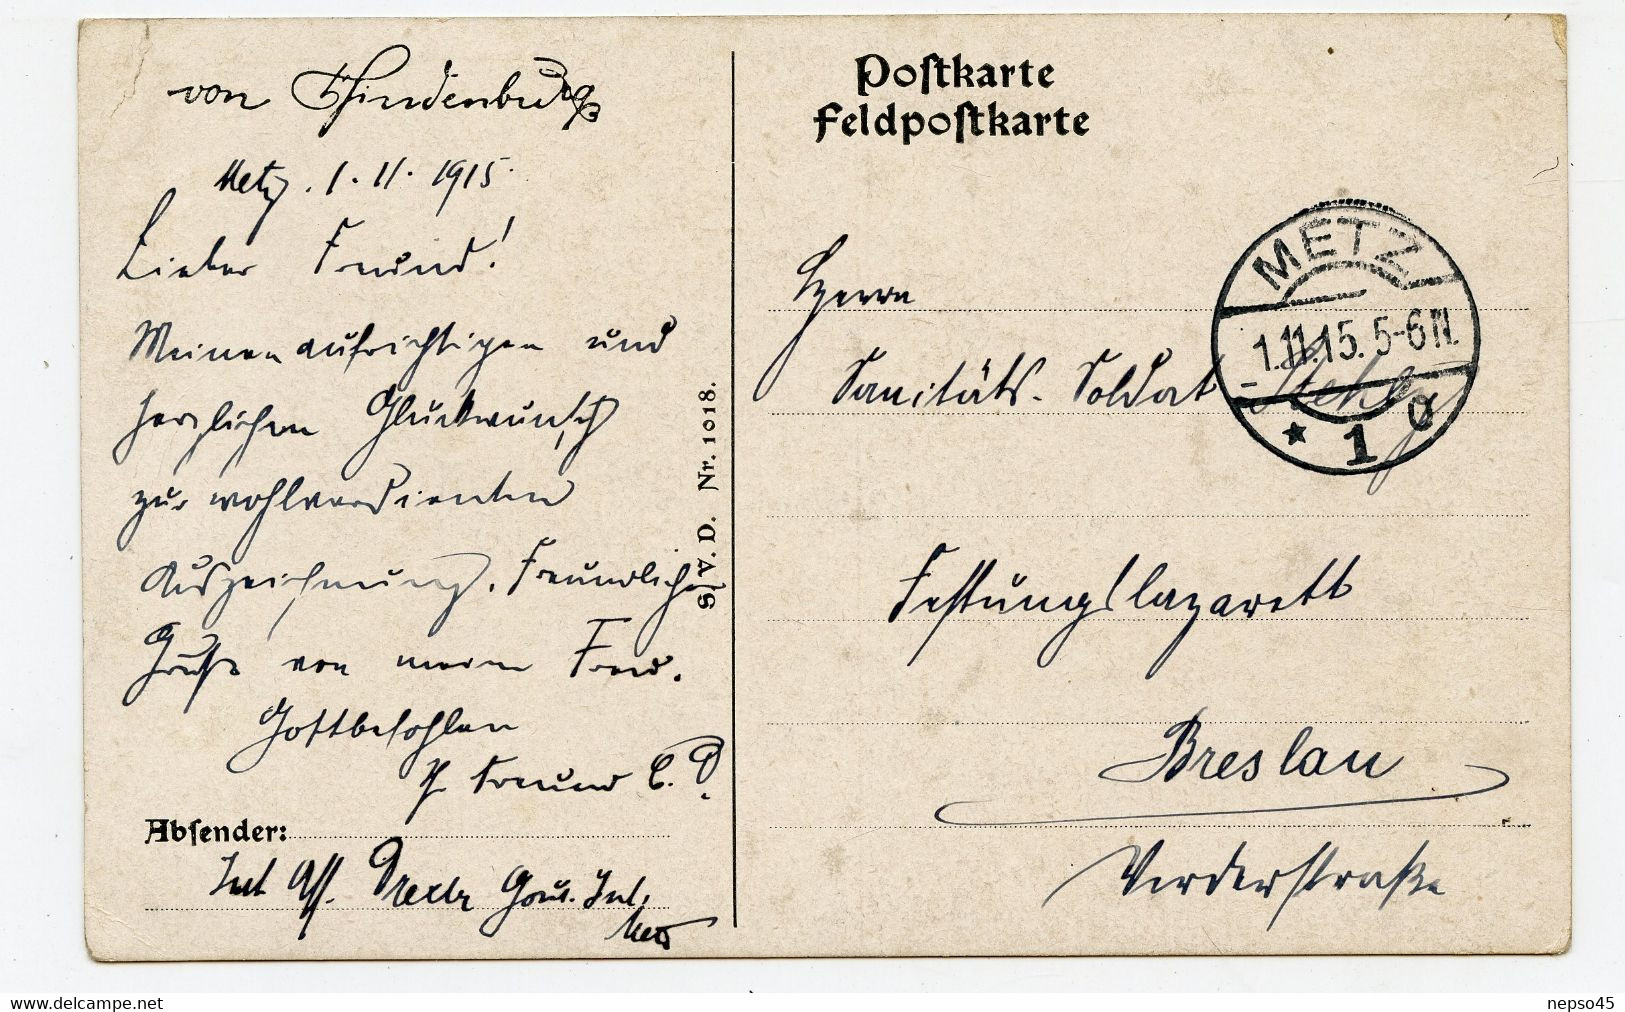 von Hindenburg
Metz. 1. 11. 1915.
Lieber Freund!
Meinen aufrichtigen und
herzlichen Glückwunsch
zur wohlverdienten
Auszeichnung. Freundliche
Grüße von
Gottbefohlen
Freund
Absender:
Int. Ass. Gouv. Int.
Metz
S. V. D. Nr. 1018.
Postkarte
Feldpostkarte
METZ
1.11.15. 5-6 N.
* 1
Herrn
Sanitäts-Soldat
Festungslazarett
Breslau
Werderstraße
nepso45